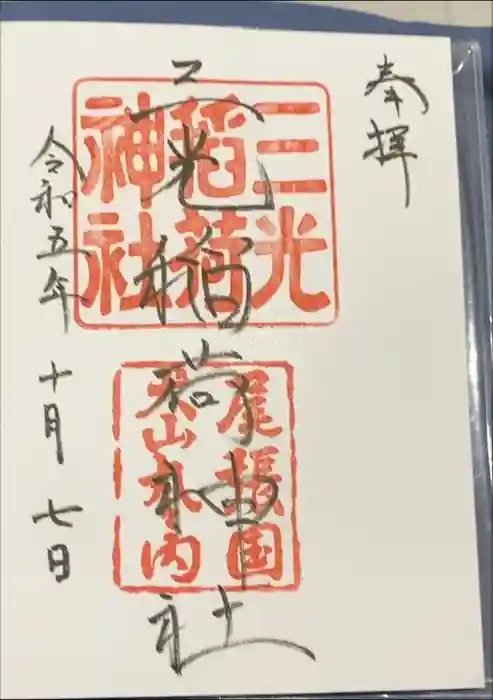 奉拝
三光稲荷神社
三光
稲荷
神社
尾張国
犬山内
令和五年 十月 七日